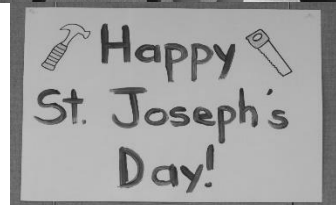 Happy
St. Joseph's
Day!